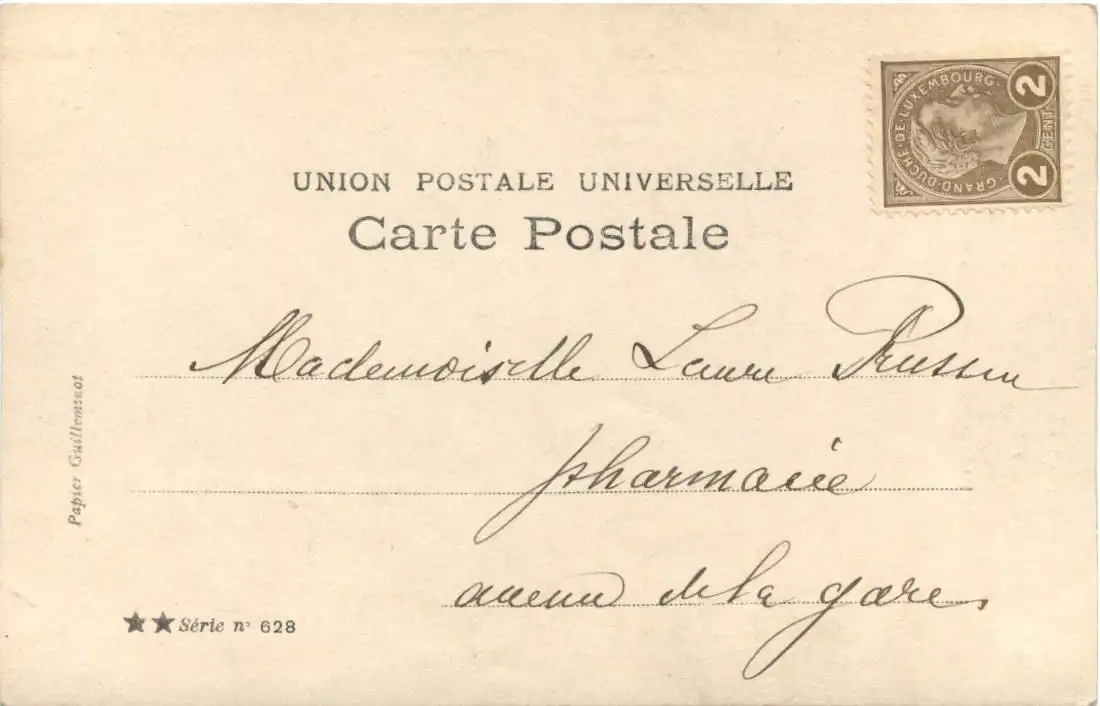 GRAND-DUCHÉ-DE-LUXEMBOURG
2 CENT 2
UNION POSTALE UNIVERSELLE
Carte Postale
Mademoiselle Laure Prussen
pharmacie
avenue de la gare
Papier Guilleminot
Série n° 628